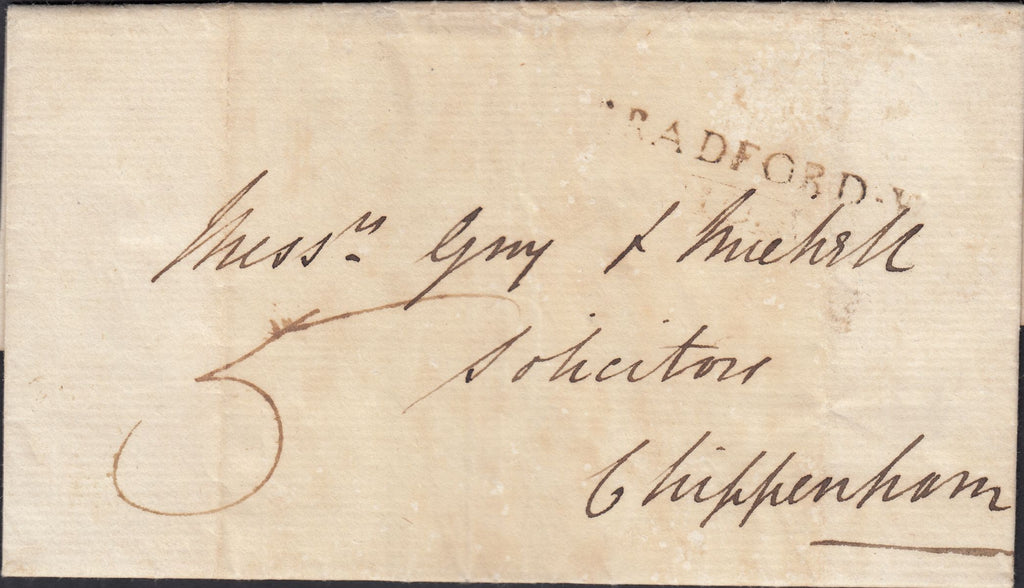 RADFORD·
Mess.rs Guy & Michell
5
Solicitors
Chippenham